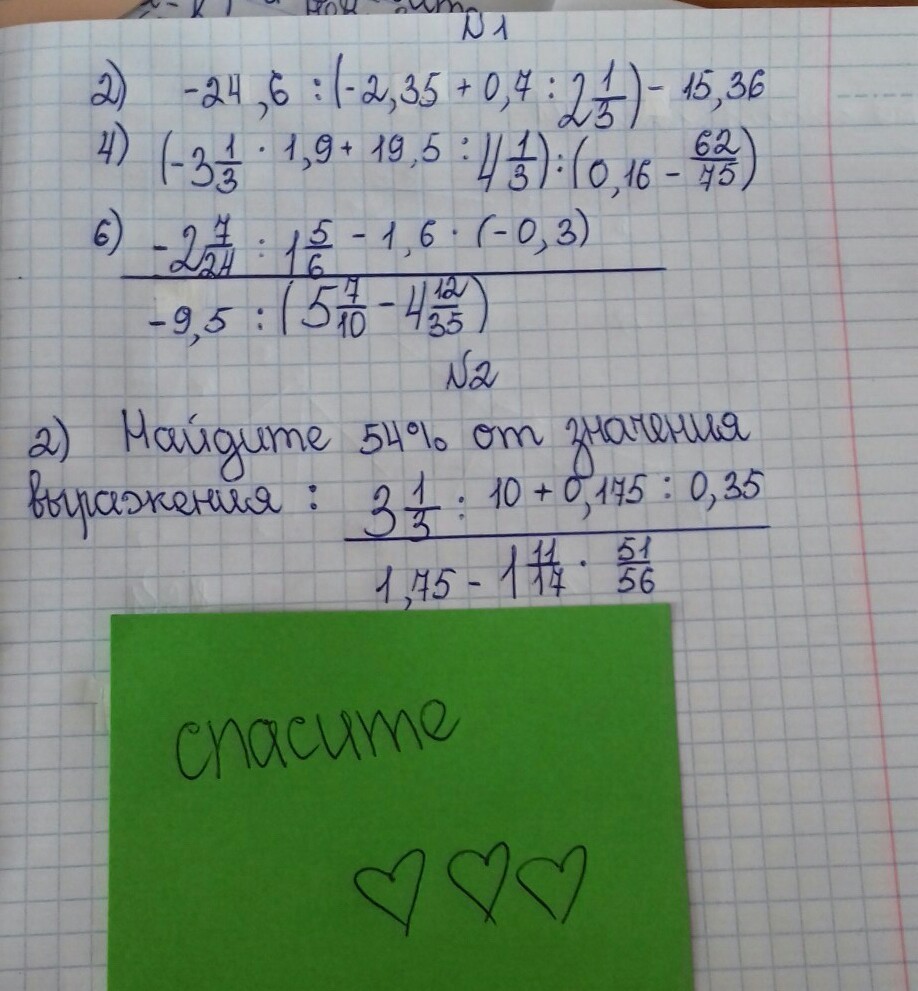 N1
2) -24,6 : (-2,35 + 0,7 : 2 1/3) - 15,36
4) (-3 1/3 · 1,9 + 19,5 : 4 1/3) : (0,16 - 62/75)
6) -2 7/24 : 1 5/6 - 1,6 · (-0,3)
-9,5 : (5 7/10 - 4 12/35)
N2
2) Найдите 54% от значения
выражения : 3 1/3 : 10 + 0,175 : 0,35
1,75 - 1 11/17 · 51/56
спасите